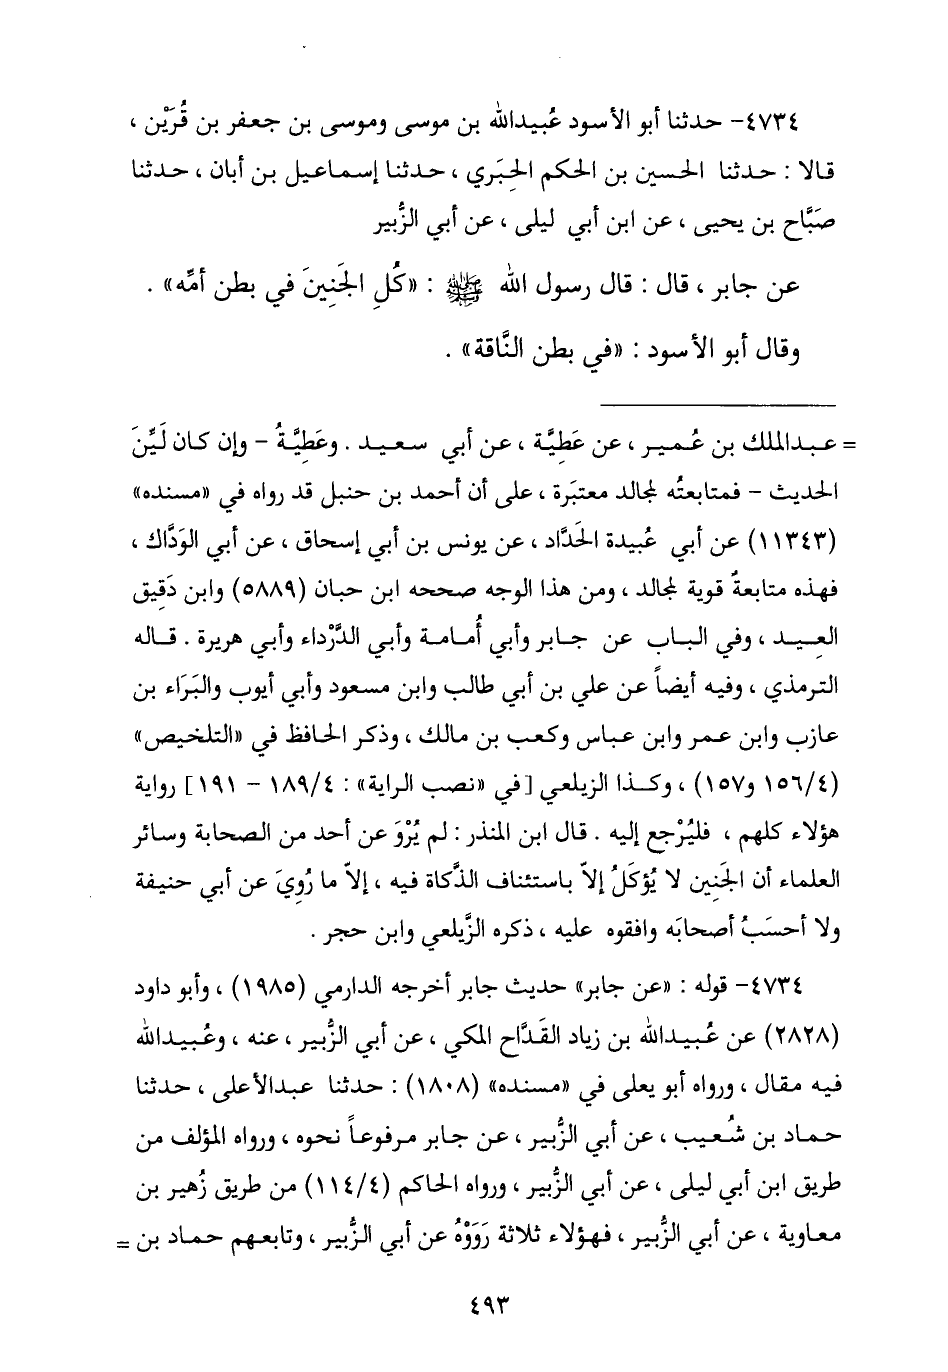 ٤٧٣٤- حدثنا أبو الأسود عُبيدالله بن موسى وموسى بن جعفر بن قُرَيْن ،
قالا : حدثنا الحسين بن الحكم الحِبَري ، حدثنا إسماعيل بن أبان ، حدثنا
صَبَّاح بن يحيى ، عن ابن أبي ليلى ، عن أبي الزُّبير
عن جابر ، قال : قال رسول الله ﷺ : «كُلِ الجَنِينَ في بطن أمِّه» .
وقال أبو الأسود : «في بطن النَّاقة» .
= عبدالملك بن عُمير ، عن عَطِيَّة ، عن أبي سعيد . وعَطِيَّةُ - وإن كان لَيِّنَ
الحديث - فمتابعتُه لمجالد معتبَرة ، على أن أحمد بن حنبل قد رواه في «مسنده»
(١١٣٤٣) عن أبي عُبيدة الحَدَّاد ، عن يونس بن أبي إسحاق ، عن أبي الوَدَّاك ،
فهذه متابعةٌ قوية لمجالد ، ومن هذا الوجه صححه ابن حبان (٥٨٨٩) وابن دَقِيق
العِيد ، وفي الباب عن جابر وأبي أُمامة وأبي الدَّرْداء وأبي هريرة . قاله
الترمذي ، وفيه أيضاً عن علي بن أبي طالب وابن مسعود وأبي أيوب والبَرَاء بن
عازب وابن عمر وابن عباس وكعب بن مالك ، وذكر الحافظ في «التلخيص»
(٤/ ١٥٦ و١٥٧) ، وكذا الزيلعي [في «نصب الراية» : ٤/ ١٨٩ - ١٩١] رواية
هؤلاء كلهم ، فليُرْجع إليه . قال ابن المنذر : لم يُرْوَ عن أحد من الصحابة وسائر
العلماء أن الجَنِين لا يُؤكَلُ إلاّ باستئناف الذَّكاة فيه ، إلاّ ما رُوِيَ عن أبي حنيفة
ولا أحسَبُ أصحابَه وافقوه عليه ، ذكره الزَّيلعي وابن حجر .
٤٧٣٤- قوله : «عن جابر» حديث جابر أخرجه الدارمي (١٩٨٥) ، وأبو داود
(٢٨٢٨) عن عُبيدالله بن زياد القَدَّاح المكي ، عن أبي الزُّبير ، عنه ، وعُبيدالله
فيه مقال ، ورواه أبو يعلى في «مسنده» (١٨٠٨) : حدثنا عبدالأعلى ، حدثنا
حماد بن شُعيب ، عن أبي الزُّبير ، عن جابر مرفوعاً نحوه ، ورواه المؤلف من
طريق ابن أبي ليلى ، عن أبي الزُّبير ، ورواه الحاكم (٤/ ١١٤) من طريق زُهير بن
معاوية ، عن أبي الزُّبير ، فهؤلاء ثلاثة رَوَوْهُ عن أبي الزُّبير ، وتابعهم حماد بن =
٤٩٣